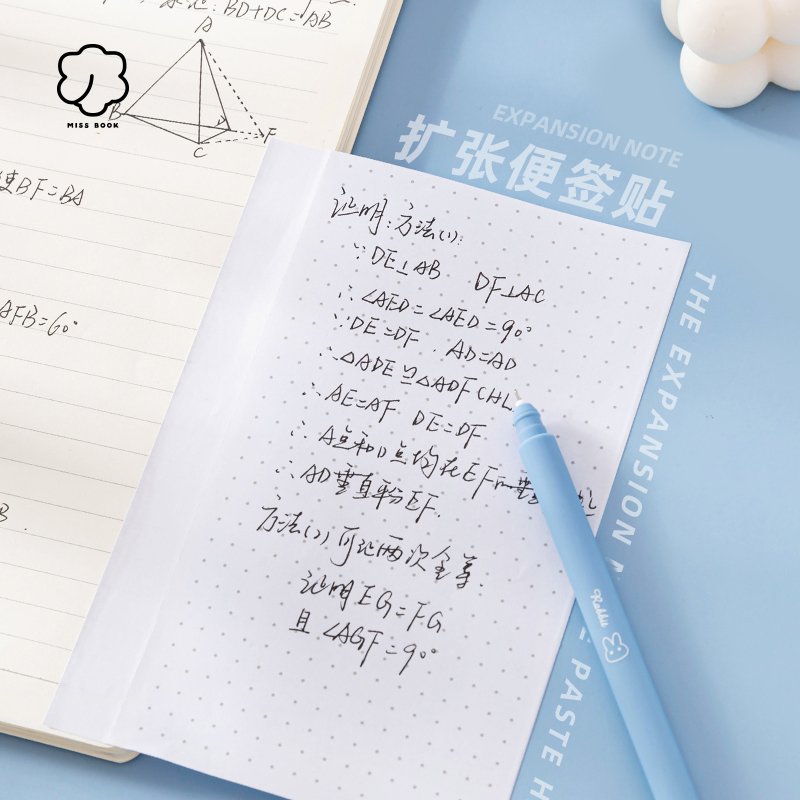 BD+DC=√AB
A
B
D
F
C
MISS BOOK
EXPANSION NOTE
扩张便签贴
BF=BA
AFB=60°
B.
证明:方法(1):
∵DE⊥AB DF⊥AC
∴∠AED=∠AED=90°
∵DE=DF. AD=AD
∴△ADE≌△ADF CHL
∴AE=AF DE=DF
∴A点和D点均在EF
∴AD垂直平分EF.
方法(2)可证两次全等.
证明EG=FG
且∠AGF=90°
Rabbit
THE EXPANSION
PASTE